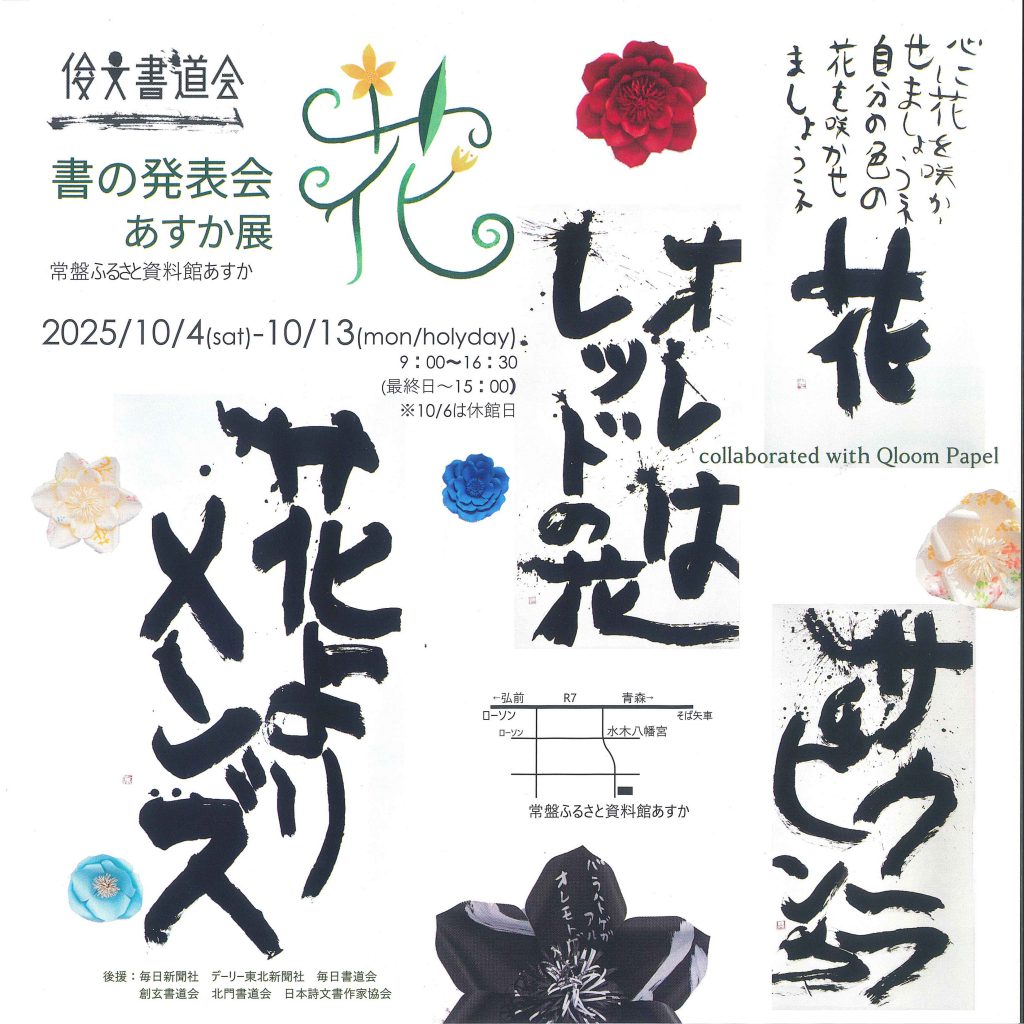 俊文書道会
書の発表会
あすか展
常盤ふるさと資料館あすか
花
2025/10/4(sat)-10/13(mon/holyday).
9：00〜16：30
(最終日〜15：00)
※10/6は休館日
心に花を咲か
せましょうネ
自分の色の
花を咲かせ
ましょうネ
花
オレは
レッドの花
collaborated with Qloom Papel
花より
メンズ
サクラ
←弘前 R7 青森→
ローソン そば矢車
ローソン 水木八幡宮
常盤ふるさと資料館あすか
バラハトゲガ
アル
オレモトガ
後援：毎日新聞社 デーリー東北新聞社 毎日書道会
創玄書道会 北門書道会 日本詩文書作家協会